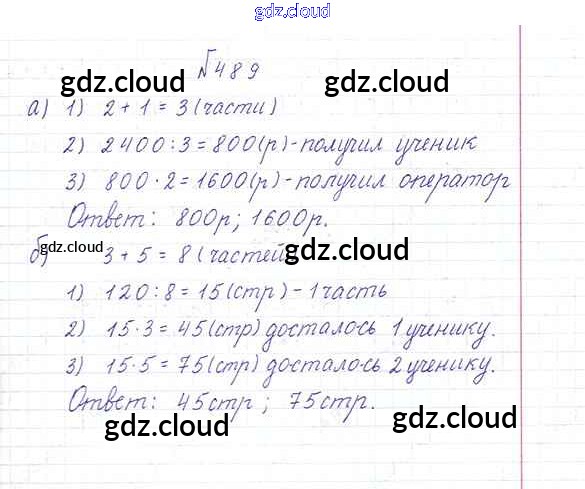 gdz.cloud
№489
gdz.cloud gdz.cloud
а) 1) 2 + 1 = 3 (части)
2) 2400 : 3 = 800(р) - получил ученик
3) 800 · 2 = 1600(р) - получил оператор
Ответ: 800р; 1600р.
б) gdz.cloud 3 + 5 = 8 (частей gdz.cloud
1) 120 : 8 = 15(стр) - 1 часть
2) 15 · 3 = 45(стр) досталось 1 ученику.
3) 15 · 5 = 75(стр) досталось 2 ученику.
Ответ: 45стр; 75стр.
gdz.cloud gdz.cloud